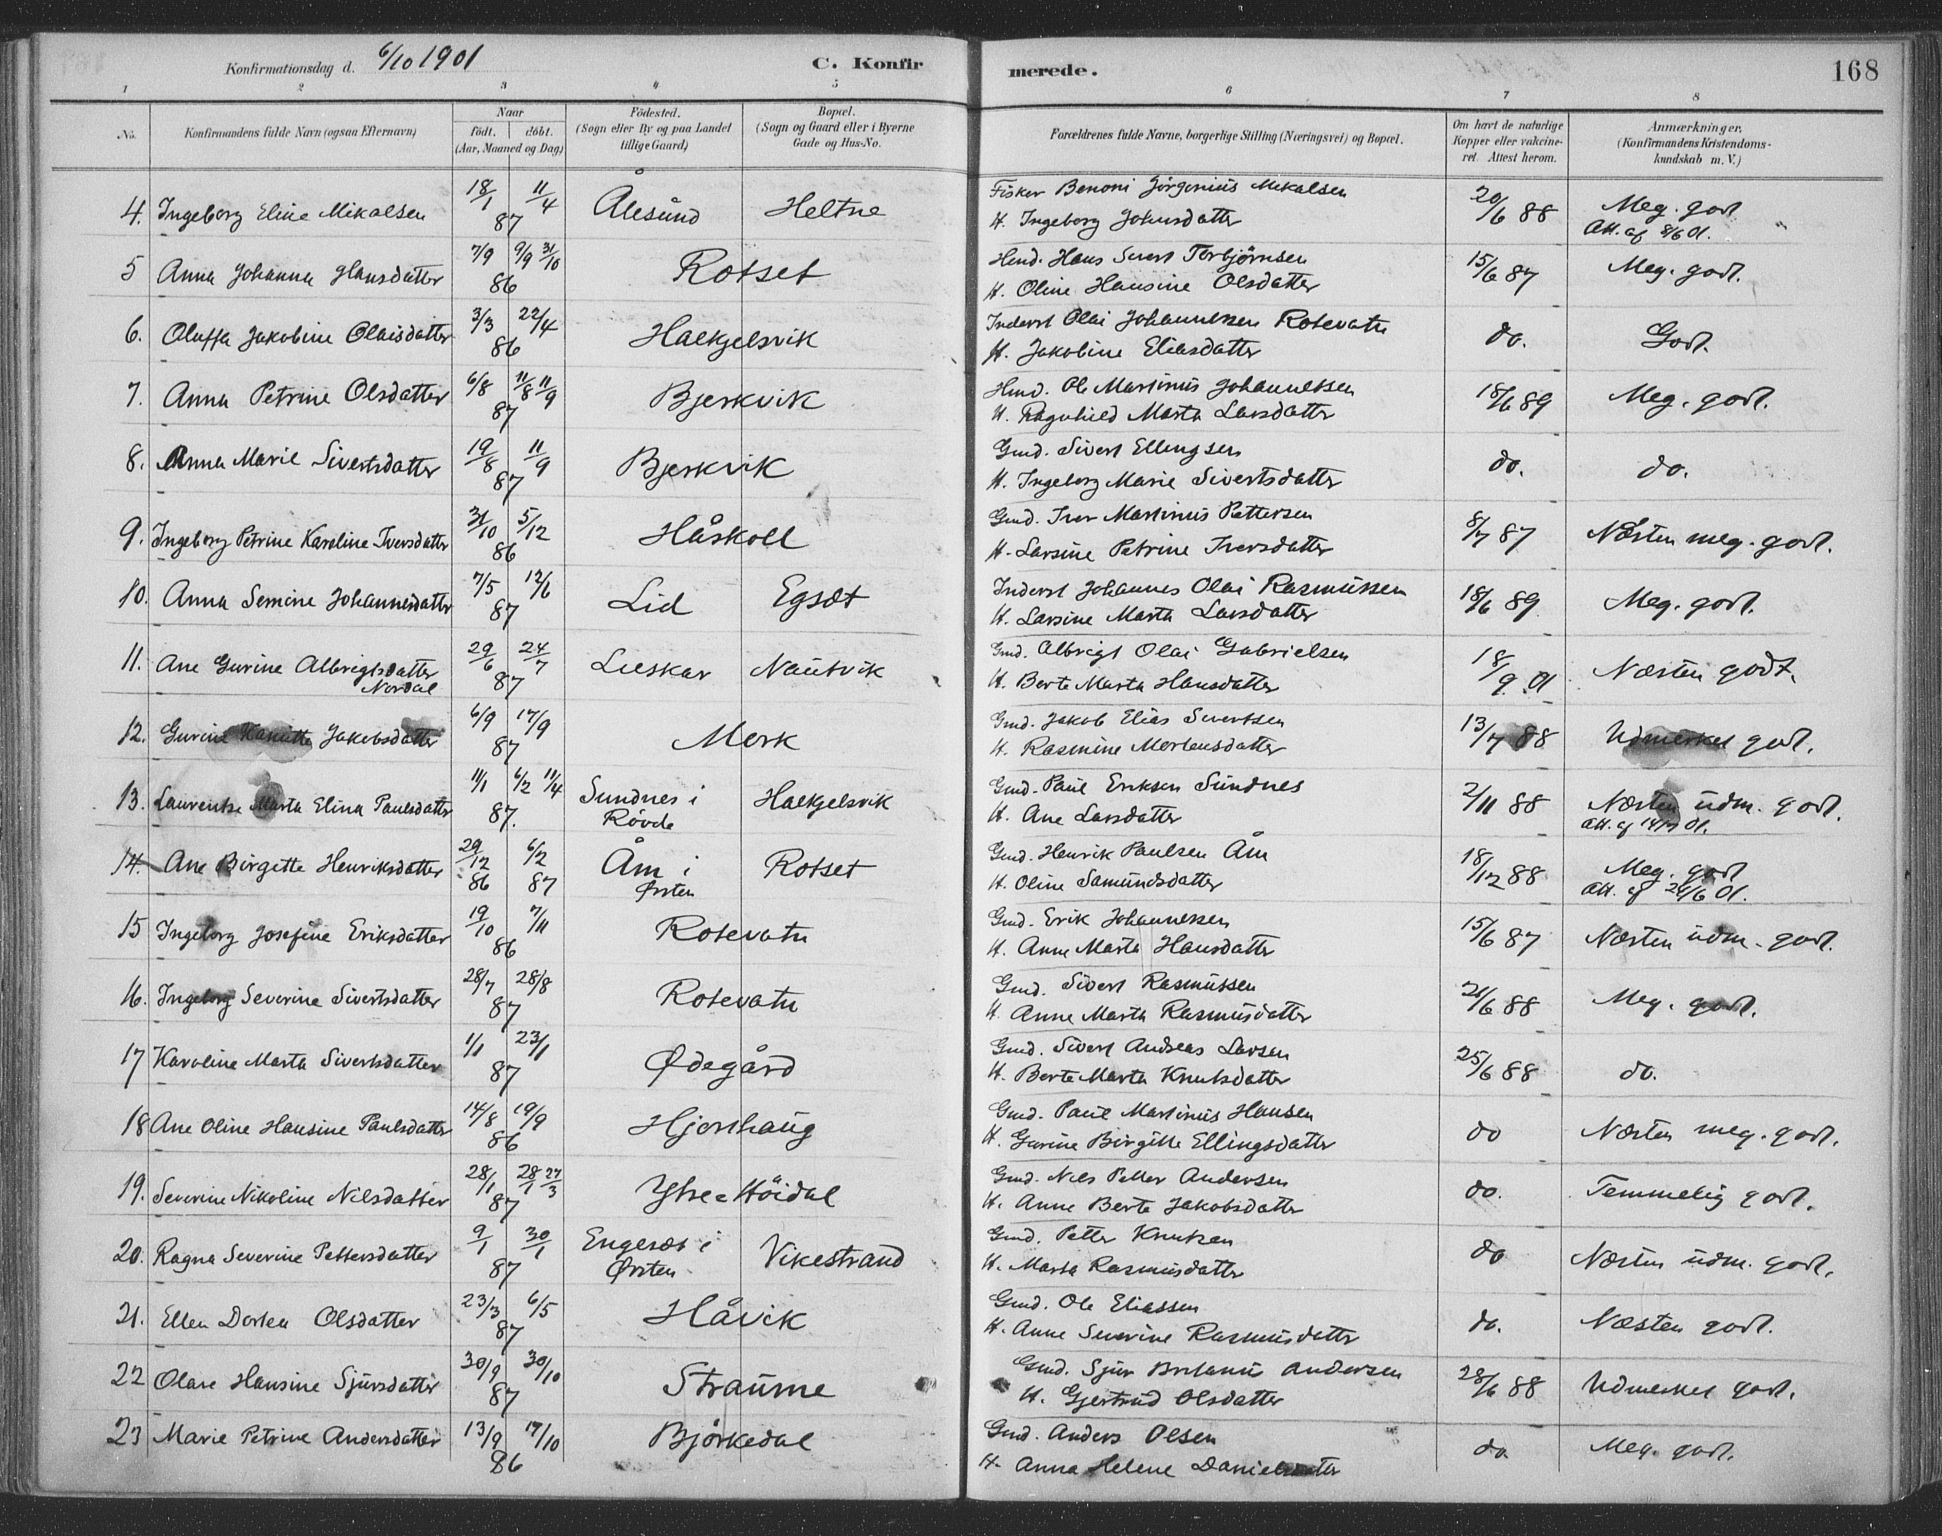 Konfirmationsdag d. 6/10 1901 C. Konfirmerede. 168
1 2 3 4 5 6 7 8
No. Konfirmandens fulde Navn (ogsaa Efternavn) Naar født. døbt. (Aar, Maaned og Dag) Fødested. (Sogn eller By og paa Landet tillige Gaard) Bopæl. (Sogn og Gaard eller i Byerne Gade og Hus-No. Forældrenes fulde Navne, borgerlige Stilling (Næringsvei) og Bopæl. Om havt de naturlige Kopper eller vakcineret. Attest herom. Anmærkninger. (Konfirmandens Kristendomskundskab m. V.)
4. Ingeborg Eline Mikalsen 18/1 11/4 87 Ålesund Heltne Fisker Benoni Jørgenius Mikalsen 20/6 88 Meg. godt
H. Ingeborg Johnsdatter Att. af 8/6 01.
5 Anna Johanna Hansdatter 7/9 9/9 31/10 86 Rotset Hmd. Hans Sivert Torbjørnsen 15/6 87 Meg. godt.
H. Oline Hansine Olsdatter
6. Oluffa Jakobine Olaisdatter 3/3 22/4 86 Halkjelsvik Inderst Olai Johannessen Rotevatn do. Godt.
H. Jakobine Eliasdatter
7. Anna Petrine Olsdatter 6/8 11/8 11/9 87 Bjerkvik Hmd. Ole Martinus Johannessen 18/6 89 Meg. godt.
H. Ragnhild Marta Larsdatter
8. Anna Marie Sivertsdatter 19/8 11/9 87 Bjerkvik Gmd. Sivert Ellingsen do. do.
H. Ingeborg Marie Sivertsdatter
9. Ingeborg Petrine Karoline Iversdatter 31/10 5/12 86 Håskoll Gmd. Iver Martinus Pettersen 8/7 87 Næsten meg. godt.
H. Larsine Petrine Iversdatter
10. Anna Semine Johannesdatter 7/5 12/6 87 Lid Egset Inderst Johannes Olai Rasmussen 18/6 89 Meg. godt.
H. Larsine Marta Larsdatter
11. Ane Gurine Albrigtsdatter 29/6 24/7 87 Lieskar Nautvik Gmd. Albrigt Olai Gabrielsen 18/9 01 Næsten godt.
Nordal H. Berte Marta Hansdatter
12. Gurine Hanitte Jakobsdatter 6/9 17/9 87 Mork Gmd. Jakob Elias Sivertsen 13/7 88 Udmerket godt.
H. Rasmine Mortensdatter
13. Laurentse Marta Elina Paulsdatter 11/1 6/2 11/4 87. Sundnes i Halkjelsvik Gmd. Paul Eriksen Sundnes 2/11 88 Næsten udm. godt.
Røvde H. Ane Larsdatter Att. af 14/7 01.
14. Ane Birgitte Henriksdatter 29/12 86 6/2 87 Åm i Rotset Gmd. Henrik Paulsen Åm 18/12 88 Meg. godt
Ørsten H. Oline Samundsdatter Att. af 24/6 01.
15 Ingeborg Josefine Eriksdatter 19/10 7/11 86 Rotevatn Gmd. Erik Johannessen 15/6 87 Næsten udm. godt.
H. Anne Marta Hansdatter
16. Ingeborg Severine Sivertsdatter 28/7 28/8 87 Rotevatn Gmd. Sivert Rasmussen 21/6 88 Meg. godt.
H. Anne Marta Rasmusdatter
17 Karoline Marta Sivertsdatter 1/1 23/1 87 Ødegård Gmd. Sivert Andreas Larsen 25/6 88 do.
H. Berte Marta Knutsdatter
18 Ane Oline Hansine Paulsdatter 14/8 19/9 86 Hjorthaug Gmd. Paul Martinus Hansen do Næsten meg. godt.
H. Gurine Birgitte Ellingsdatter
19. Severine Nikoline Nilsdatter 28/1 28/1 27/3 87 Ytre-Höidal Gmd. Nils Petter Andersen do. Temmelig godt.
H. Anne Berte Jakobsdatter
20. Ragna Severine Pettersdatter 9/1 30/1 87 Engeset i Vikestrand Gmd. Petter Knutsen do Næsten udm. godt.
Ørsten H. Marta Rasmusdatter
21. Ellen Dortea Olsdatter 23/3 6/5 87 Håvik Gmd. Ole Eliassen do. Næsten godt.
H. Anne Severine Rasmusdatter
22 Olave Hansine Sjursdatter 30/9 30/10 87 Straume Gmd. Sjur Andersen 28/6 88 Udmerket godt.
H. Gjertrud Olsdatter
23 Marie Petrine Andersdatter 13/9 17/10 86 Björkedal Gmd. Anders Olsen do. Meg. godt.
H. Anna Helene Danielsdatter